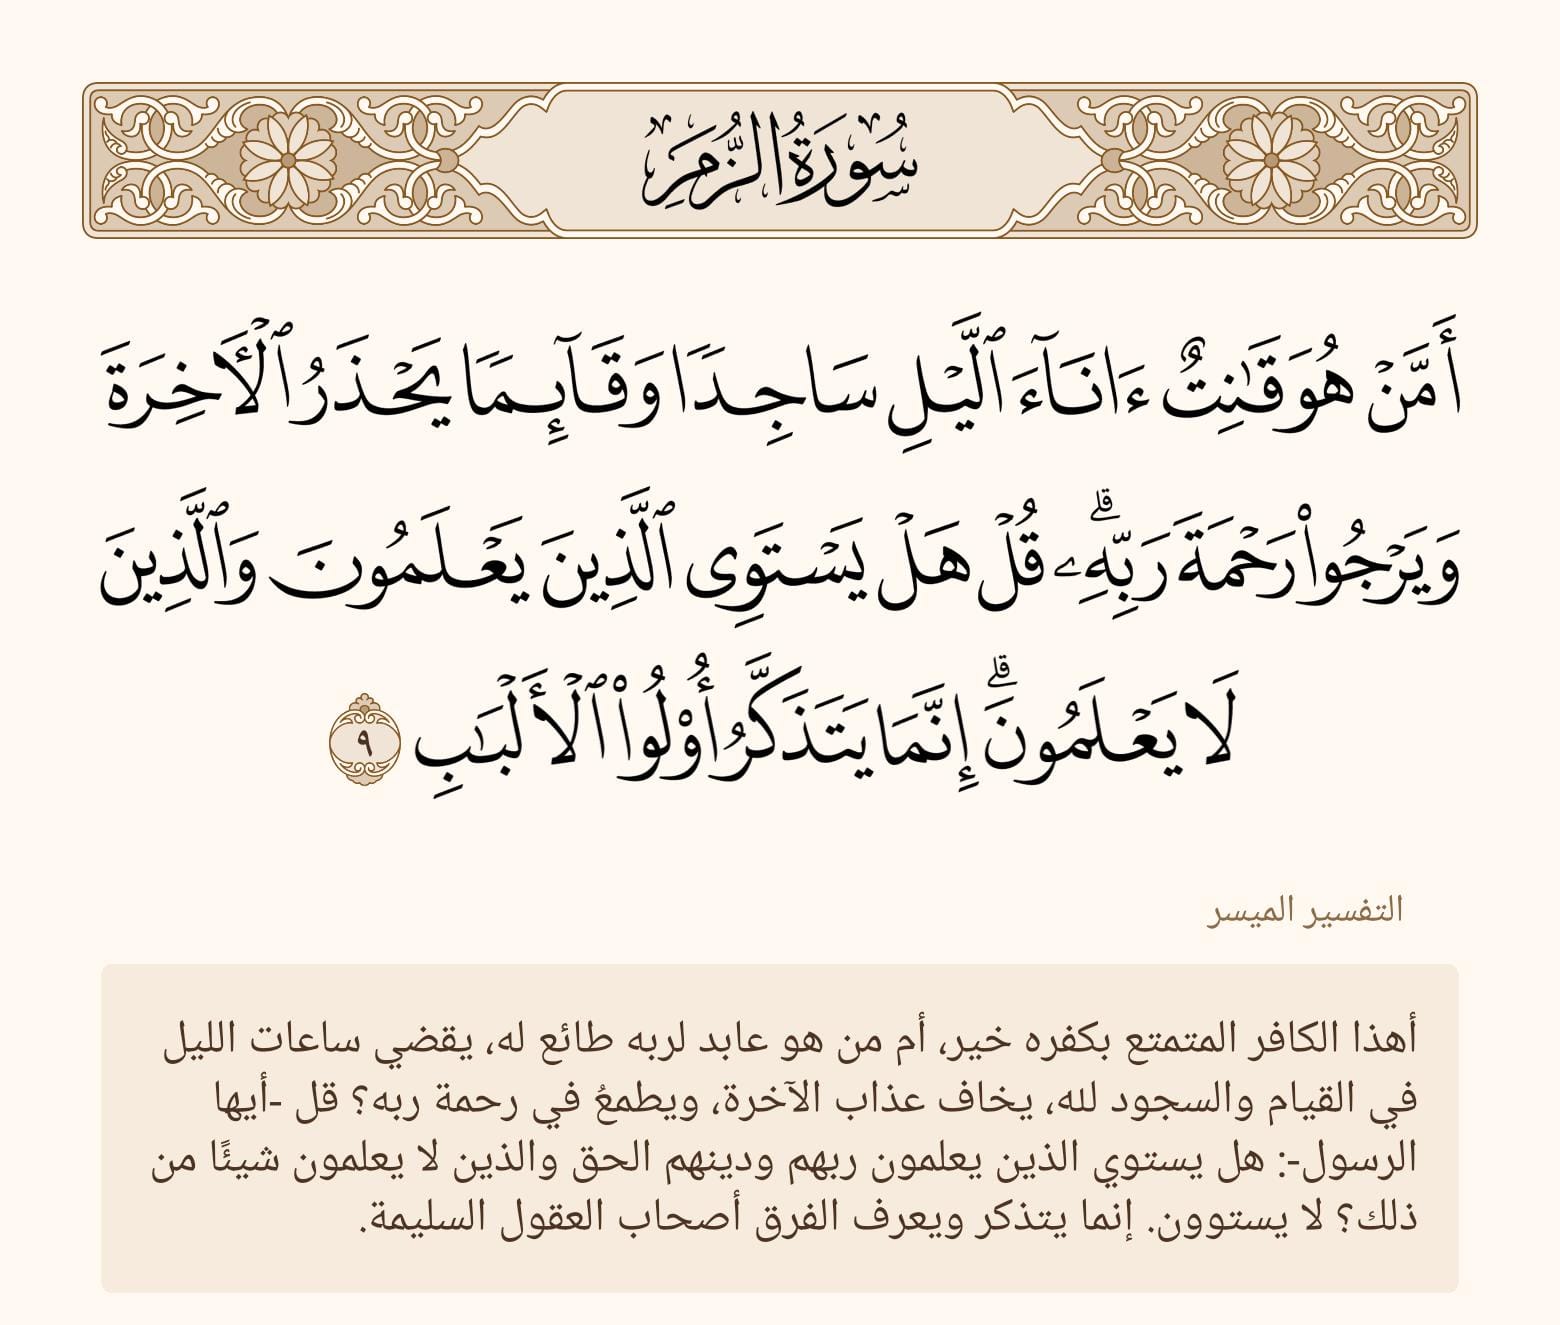 سُورَةُ الزُّمَرِ
أَمَّنۡ هُوَ قَٰنِتٌ ءَانَآءَ ٱلَّيۡلِ سَاجِدٗا وَقَآئِمٗا يَحۡذَرُ ٱلۡأٓخِرَةَ
وَيَرۡجُواْ رَحۡمَةَ رَبِّهِۦۗ قُلۡ هَلۡ يَسۡتَوِي ٱلَّذِينَ يَعۡلَمُونَ وَٱلَّذِينَ
لَا يَعۡلَمُونَۗ إِنَّمَا يَتَذَكَّرُ أُوْلُواْ ٱلۡأَلۡبَٰبِ ٩
التفسير الميسر
أهذا الكافر المتمتع بكفره خير، أم من هو عابد لربه طائع له، يقضي ساعات الليل
في القيام والسجود لله، يخاف عذاب الآخرة، ويطمعُ في رحمة ربه؟ قل -أيها
الرسول-: هل يستوي الذين يعلمون ربهم ودينهم الحق والذين لا يعلمون شيئًا من
ذلك؟ لا يستوون. إنما يتذكر ويعرف الفرق أصحاب العقول السليمة.